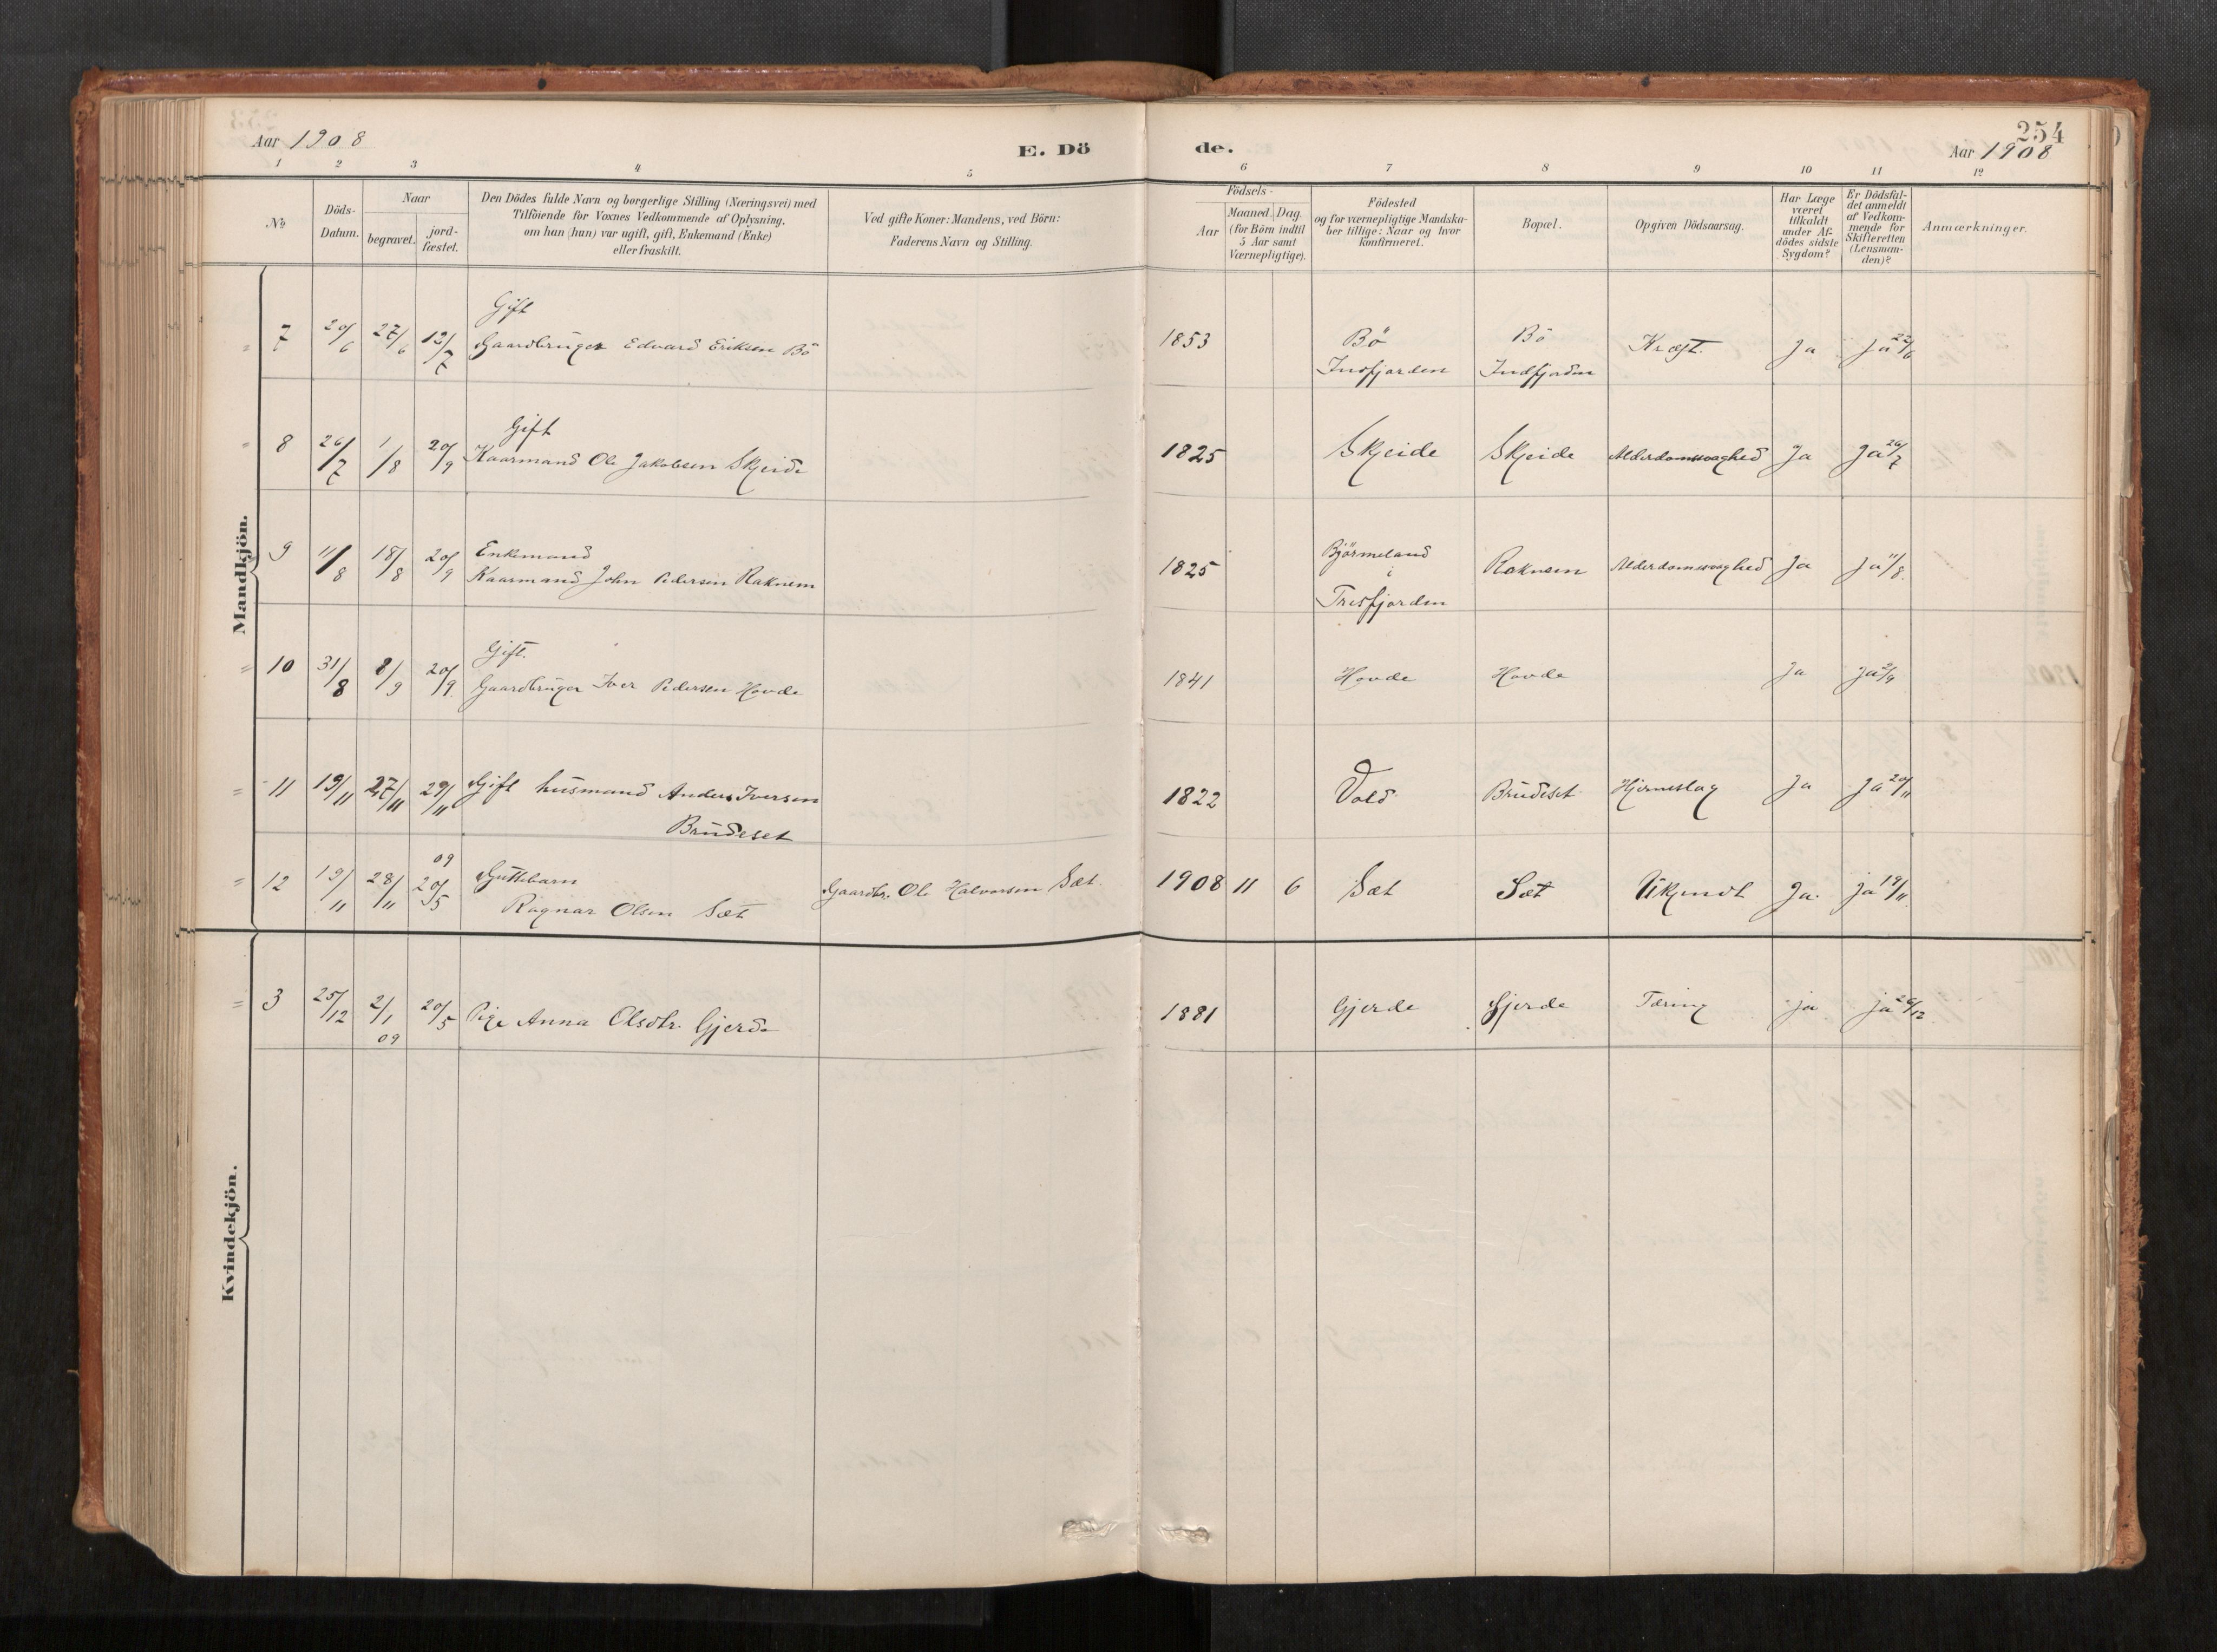 254
Aar 1908
E. Dö
de.
Aar 1908
1 2 3 4 5 6 7 8 9 10 11 12
No
Döds-
Datum.
Naar
begravet.
jord-
fæstet.
Den Dödes fulde Navn og borgerlige Stilling (Næringsvei) med
Tilföiende for Voxnes Vedkommende af Oplysning,
om han (hun) var ugift, gift, Enkemand (Enke)
eller fraskilt.
Ved gifte Koner: Mandens, ved Börn:
Faderens Navn og Stilling.
Födsels-
Aar
Maaned. Dag.
(for Börn indtil
5 Aar samt
Værnepligtige).
Födested
og for værnepligtige Mandska-
ber tillige: Naar og hvor
konfirmeret.
Bopæl.
Opgiven Dödsaarsag.
Har Læge
været
tilkaldt
under Af-
dödes sidste
Sygdom?
Er Dödsfal-
det anmeldt
af Vedkom-
mende for
Skifteretten
(Lensman-
den)?
Anmærkninger.
Mandkjön.
Gift
7 20/6 27/6 12/7 Gaardbruger Edvard Eriksen Bö 1853 Bö Bö Kræft. Ja Ja 22/6
Insfjorden Indfjorden
Gift
8 26/7 1/8 20/9 Kaarmand Ole Jakobsen Skjeide 1825 Skjeide Skjeide Alderdomssvaghed Ja Ja 26/7
Enkemand Björmeland
9 11/8 18/8 20/9 Kaarmand John Pedersen Raknem 1825 i Raknem Alderdomssvaghed Ja Ja 11/8.
Tresfjorden
Gift.
10 31/8 8/9 20/9 Gaardbruger Iver Pedersen Hovde 1841 Hovde Hovde Ja Ja
11 19/11 27/11 29/11 Gift husmand Anders Iversen 1822 Vold Brudeset Hjerneslag Ja Ja 20/11
Brudeset
09
12 19/11 28/11 20/5 Guttebarn Gaardbr. Ole Halvorsen Sæt. 1908 11 6 Sæt Sæt Ukjendt Ja. Ja 19/11.
Ragnar Olsen Sæt
Kvindekjön.
3 25/12 2/1 20/5 Pige Anna Olsdtr. Gjerde 1881 Gjerde Gjerde Tæring ja ja 26/12
09